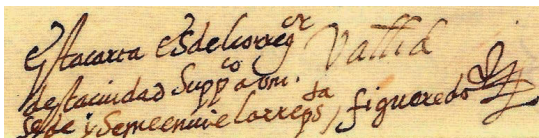 Esta carta es del correg^or Vallid
desta ciudad Supp^co a vm.
se de y Se me enuie la rrep^sta, figueredo